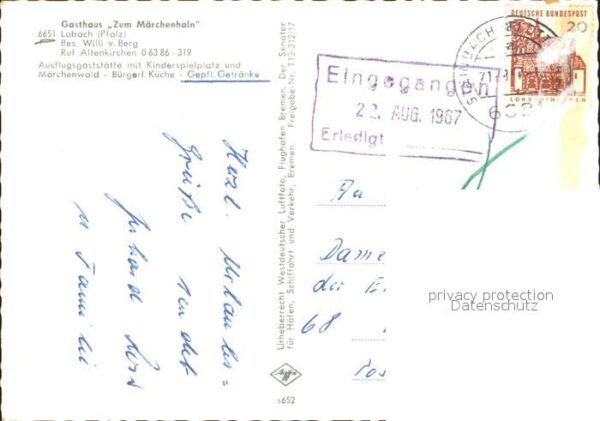 Gasthaus „Zum Märchenhain"
6651 Labach (Pfalz)
Bes. Willi v. Berg
Ruf Altenkirchen 0 63 86 - 319
Ausflugsgaststätte mit Kinderspielplatz und
Märchenwald - Bürgerl. Küche - Gepfl. Getränke
Herzl. Urlaubs=
Grüße sendet
Gerhard
u. Familie
Urheberrecht Westdeutscher Luftfoto, Flughafen Bremen. Der Senator
für Häfen, Schiffahrt und Verkehr, Bremen. Freigabe Nr. T13-312/17
Agfa
s652
Eingegangen
AUG. 1967
Erledigt
DEUTSCHE BUNDESPOST
20
An
Dame
der E
68
privacy protection
Datenschutz